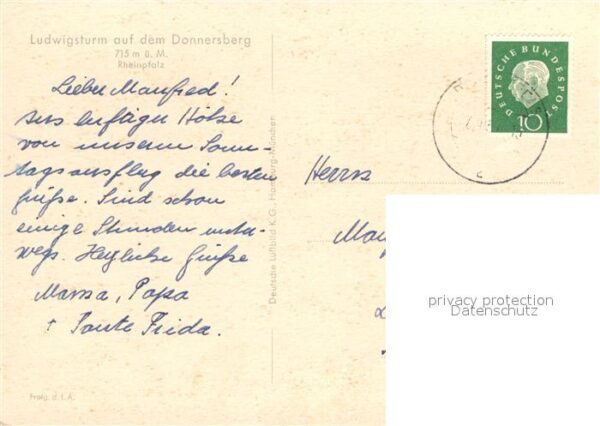 Ludwigsturm auf dem Donnersberg
715 m ü. M.
Rheinpfalz
Lieber Manfred!
Aus luftiger Höhe
von unserem Sonn-
tagsausflug die besten
Grüße. Sind schon
einige Stunden unter-
wegs. Herzliche Grüße
Mama, Papa
+ Tante Frieda.
Deutsche Luftbild K.G., Hamburg-München
DEUTSCHE BUNDESPOST
10
Herrn
privacy protection
Datenschutz